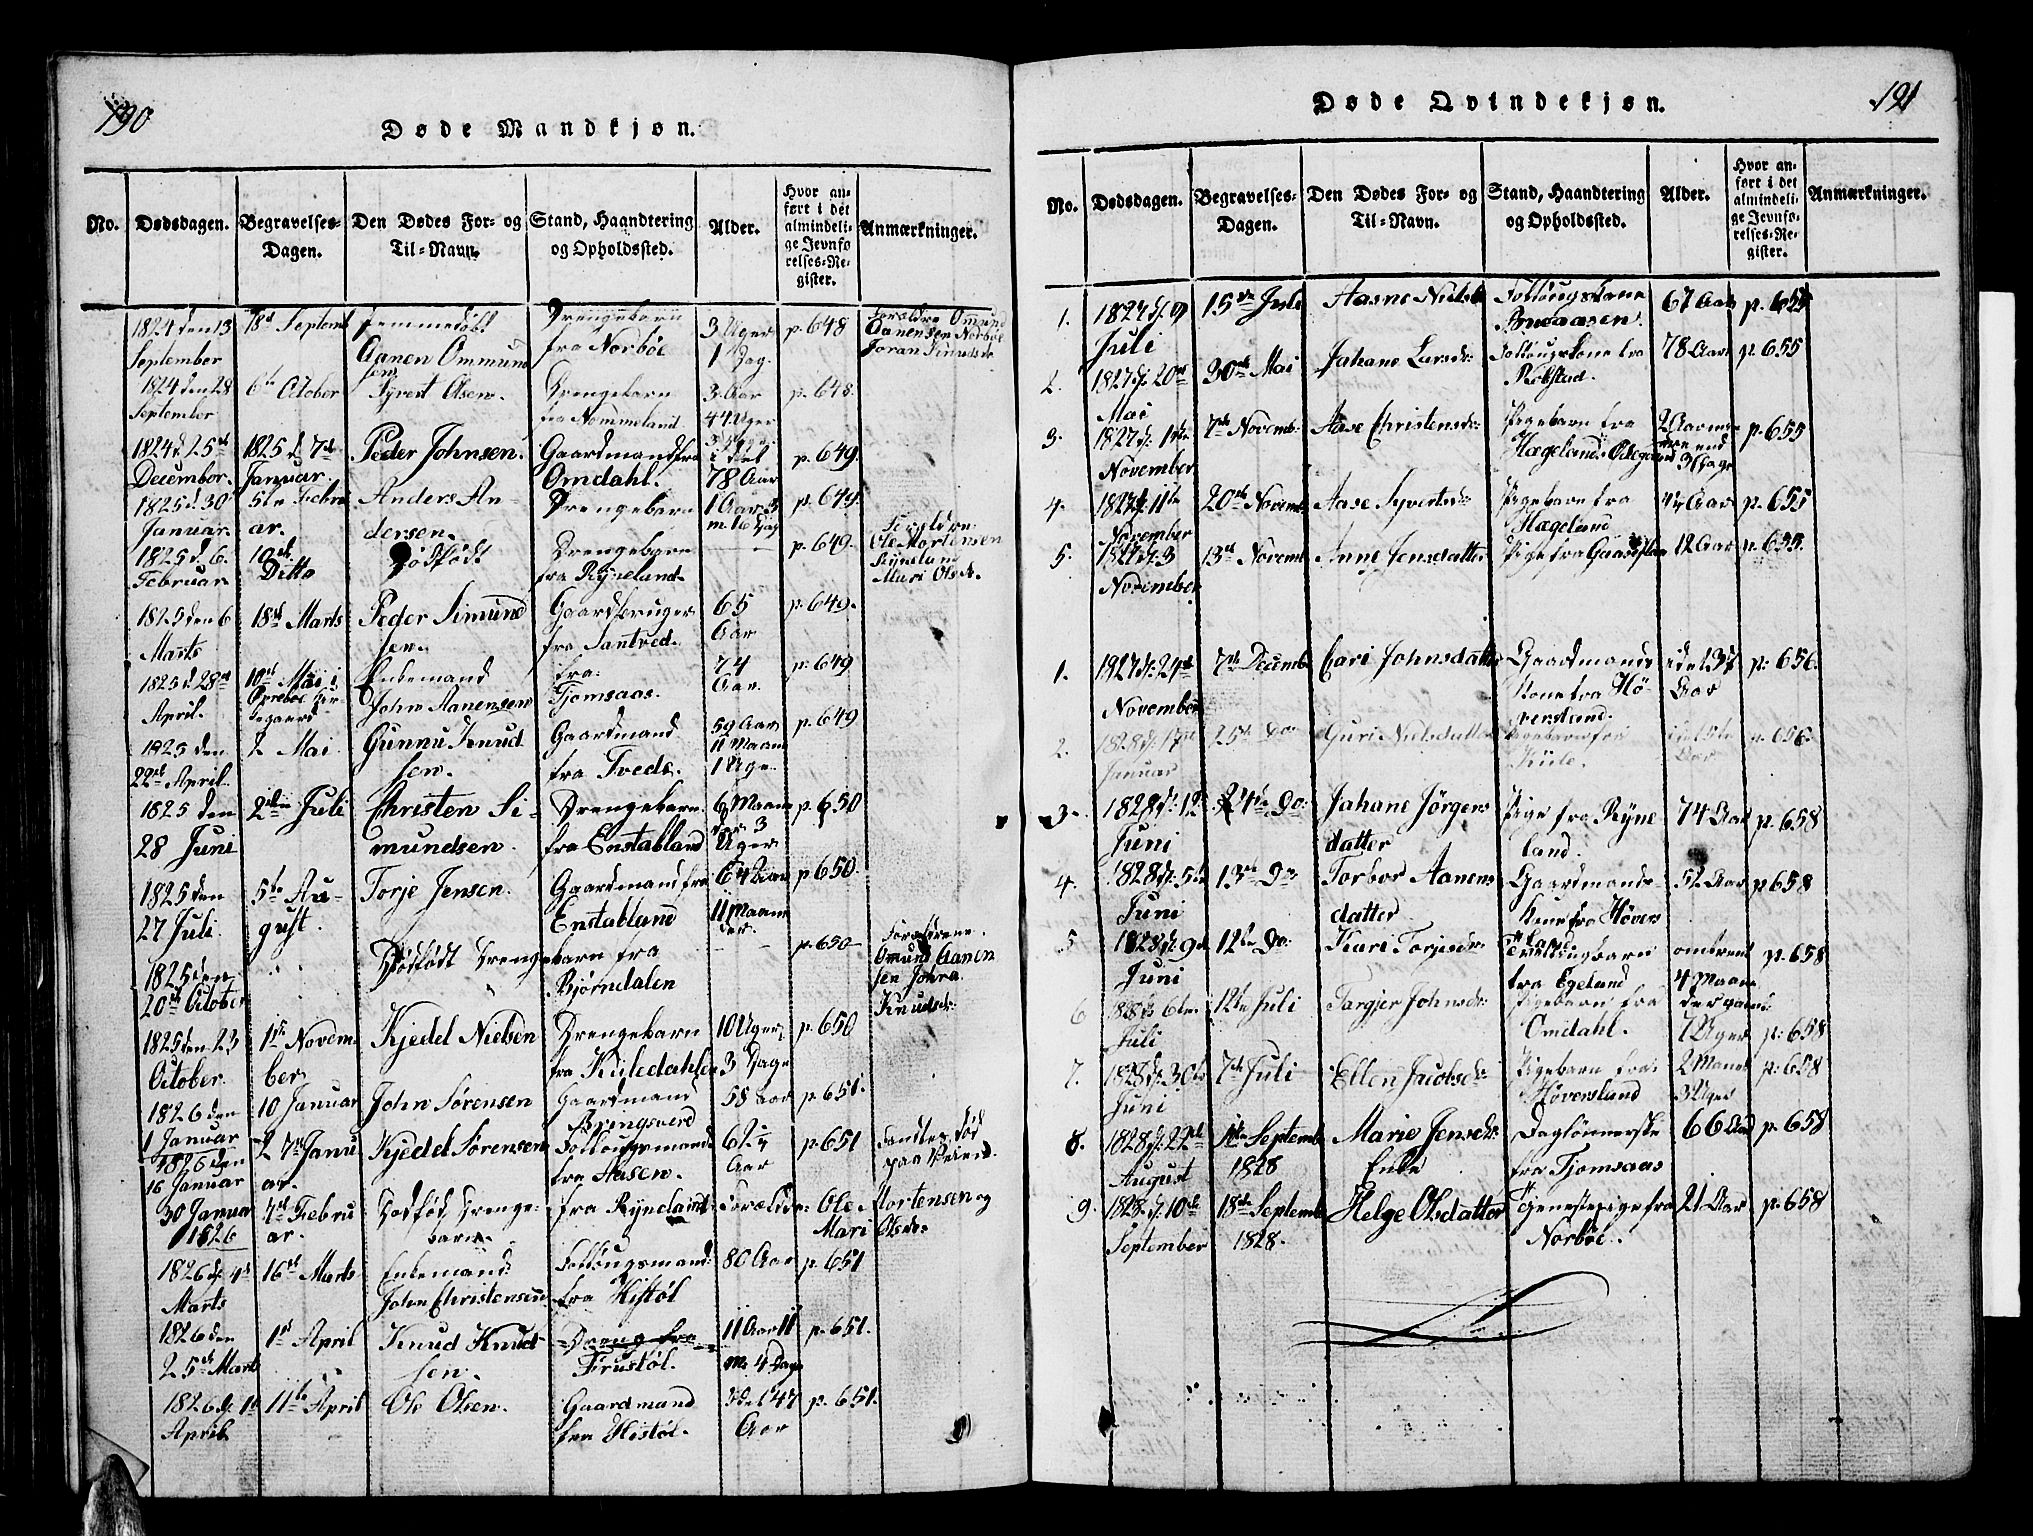 190
Døde Mandkjøn.
No.
Dødsdagen.
Begravelses-
Dagen.
Den Dødes For- og
Til-Navn.
Stand, Haandtering
og Opholdssted.
Alder.
Hvor an-
ført i det
almindeli-
ge Jevnfø
relses-Re-
gister.
Anmærkninger.
1824 den 13 September
18d Septemb
hjemmedøbt Aanen Ommundsen
Drengebarn fra Norbøe
3 Uger 1 Dag
p. 648
Forældre Ommund Aanensen Norbøe
1824 den 28 September
6te October
Syvert Olsen.
Drengebarn fra Nommeland
3 Aar
p. 648.
1824 d. 25de December.
1825 d. 7de Januar.
Peder Johnsen.
Gaardmand fra Omdahl.
i det 78 Aar
p. 649.
1825 d. 30 Januar.
5te Febru ar.
Anders Andersen.
Drengebarn
1 Aar 3 m. 16 Dag
p. 649.
1825 d. 6. Februar
10de Ditto
Dødfødt
Drengebarn fra Ryneland.
p. 649.
Forældre: Ole Mortensen
Ryneland
Mari Olsdr.
1825 den 6 Marts
18de Marts
Peder Simundsen.
Gaardbruger fra Santved.
65 Aar
p. 649.
1825 d. 28de April.
10de Mai i Øvrebøe Kirkegaard
Enkemand John Aanensen
fra Tjomsaas.
74 Aar.
p. 649
1825 den 22de April.
2 Mai
Gunnu Knudsen.
Gaardmand fra Tveds.
59 Aar 11 Maan 1 Uge.
p. 649
1825 den 28 Juni
2den Juli
Christen Simundsen.
Drengebarn fra Enstabland
6 Maaneder 3 Uger
p. 650
1825 den 27 Juli
5te August.
Torje Jensen.
Gaardmand fra Enstabland
64 Aar 11 Maaneder.
p. 650.
1825 den 20de October
Dødfødt Drengebarn fra Bjørndalen
p. 650
Forældrene. Omund Aanensen Johra Knudsdr.
1825 den 23 October.
1ste November.
Kjedel Nielsen
Drengebarn fra Kuledahlen
10 Uger 3 Dage
p. 650
1826 den 1 Januar
10 Januar
John Sørensen
Gaardmand Bringsverd
58 Aar
p. 651.
1826 den 16 Januar
27de Januar.
Kjedel Sørensen
Føllougsmand fra Aasen.
62 Aar
p. 651
Fandtes død paa Veien.
30 Januar 1826
4de Februar.
Dødfød Drengebarn.
fra Ryneland
Forældre: Ole Mortensen og
Mari Olsdr.
1826 d. 4de Marts
16de Marts
Enkemand John Christensen
Føllougsmand fra Histøl
80 Aar
p. 651
1826 den 25de Marts
1ste April
Knud Knudsen.
Dreng fra Frustøl.
11 Aar 11 M. 4 Dage
p. 651.
1826 d. 1ste April
11te April
Ole Olsen.
Gaardmand fra Histøl.
i det 47 Aar
p. 651.
191
Døde Qvindekjøn.
No.
Dødsdagen.
Begravelses-
Dagen.
Den Dødes For- og
Til-Navn.
Stand, Haandtering
og Opholdssted.
Alder.
Hvor an-
ført i det
almindeli-
ge Jevnfø-
relses-Re-
gister.
Anmærkninger.
1.
1827 d. 9 Juli
15de Juli
Aasne Nielsd
67 Aar
p. 655
2.
1827 d. 20de Mai
30te Mai
Johane Larsdr:
Føllougskone fra Rekstad.
78 Aar
p. 655
3.
1827 d. 1ste November
7de Novemb:
Aase Christensdr:
Pigebarn fra Hægeland. Ødegaard
p. 655
4.
1827 d. 11te November
20de Novemb
Aase Syvertsdr:
Pigebarn fra Hægeland
p. 655
5.
1827 d. 3 November
13de Novemb
Anne Jensdatter
Pige fra
12 Aar
p. 655.
1.
1827 d. 24de November
7de Decemb
Cari Johnsdatter
Gaardmands Kone fra Høversland.
i det 37 Aar
p. 656.
2.
1828 d. 17de Januar
25de Do
Guri Nielsdatter
Kule.
p. 656.
3.
1828 d. 12 Juni
24de Do:
Johane Jørgensdatter
Pige fra Ryneland.
74 Aar
p. 658
4.
1828 d. 5te Juni
13de Do
Torbor Aanensdatter
Gaardmands Kone fra Høversland
52 Aar
p 658
5
1828 d. 9de Juni
12te Do:
Kari Torjesdr:
Tvillingbarn fra Egeland
omtrent 4 Maaneder gaml.
p. 658
6
1828 d. 6te Juli
12te Juli
Targjer Johnsdr:
Pigebarn fra Omdahl.
7 Uger
p: 658
7.
1828 d. 30te Juni
7de Juli
Ellen Jacobsdr:
Pigebarn fra Høversland
2 Maan 3 Uger
p: 658
8.
1828 d. 22de August
1ste Septemb 1828
Marie Jensdr: Enke
Daglønnerske fra Tjomsaas
66 Aar
p. 658
9.
1828 d. 10de September
18de Septemb 1828.
Helge Olsdatter
Tjenestepige fra Norbøe.
21 Aar
p. 658